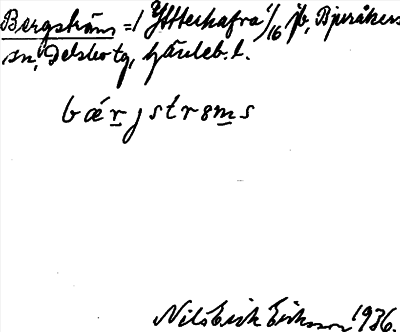 Bergströms = 1 Ytterhafra 1/16 fb, Bjuråkers
sn, Delsbo tg, Gävleb. l.
bǽrjstroms
Nils Erik Eriksson 1936.